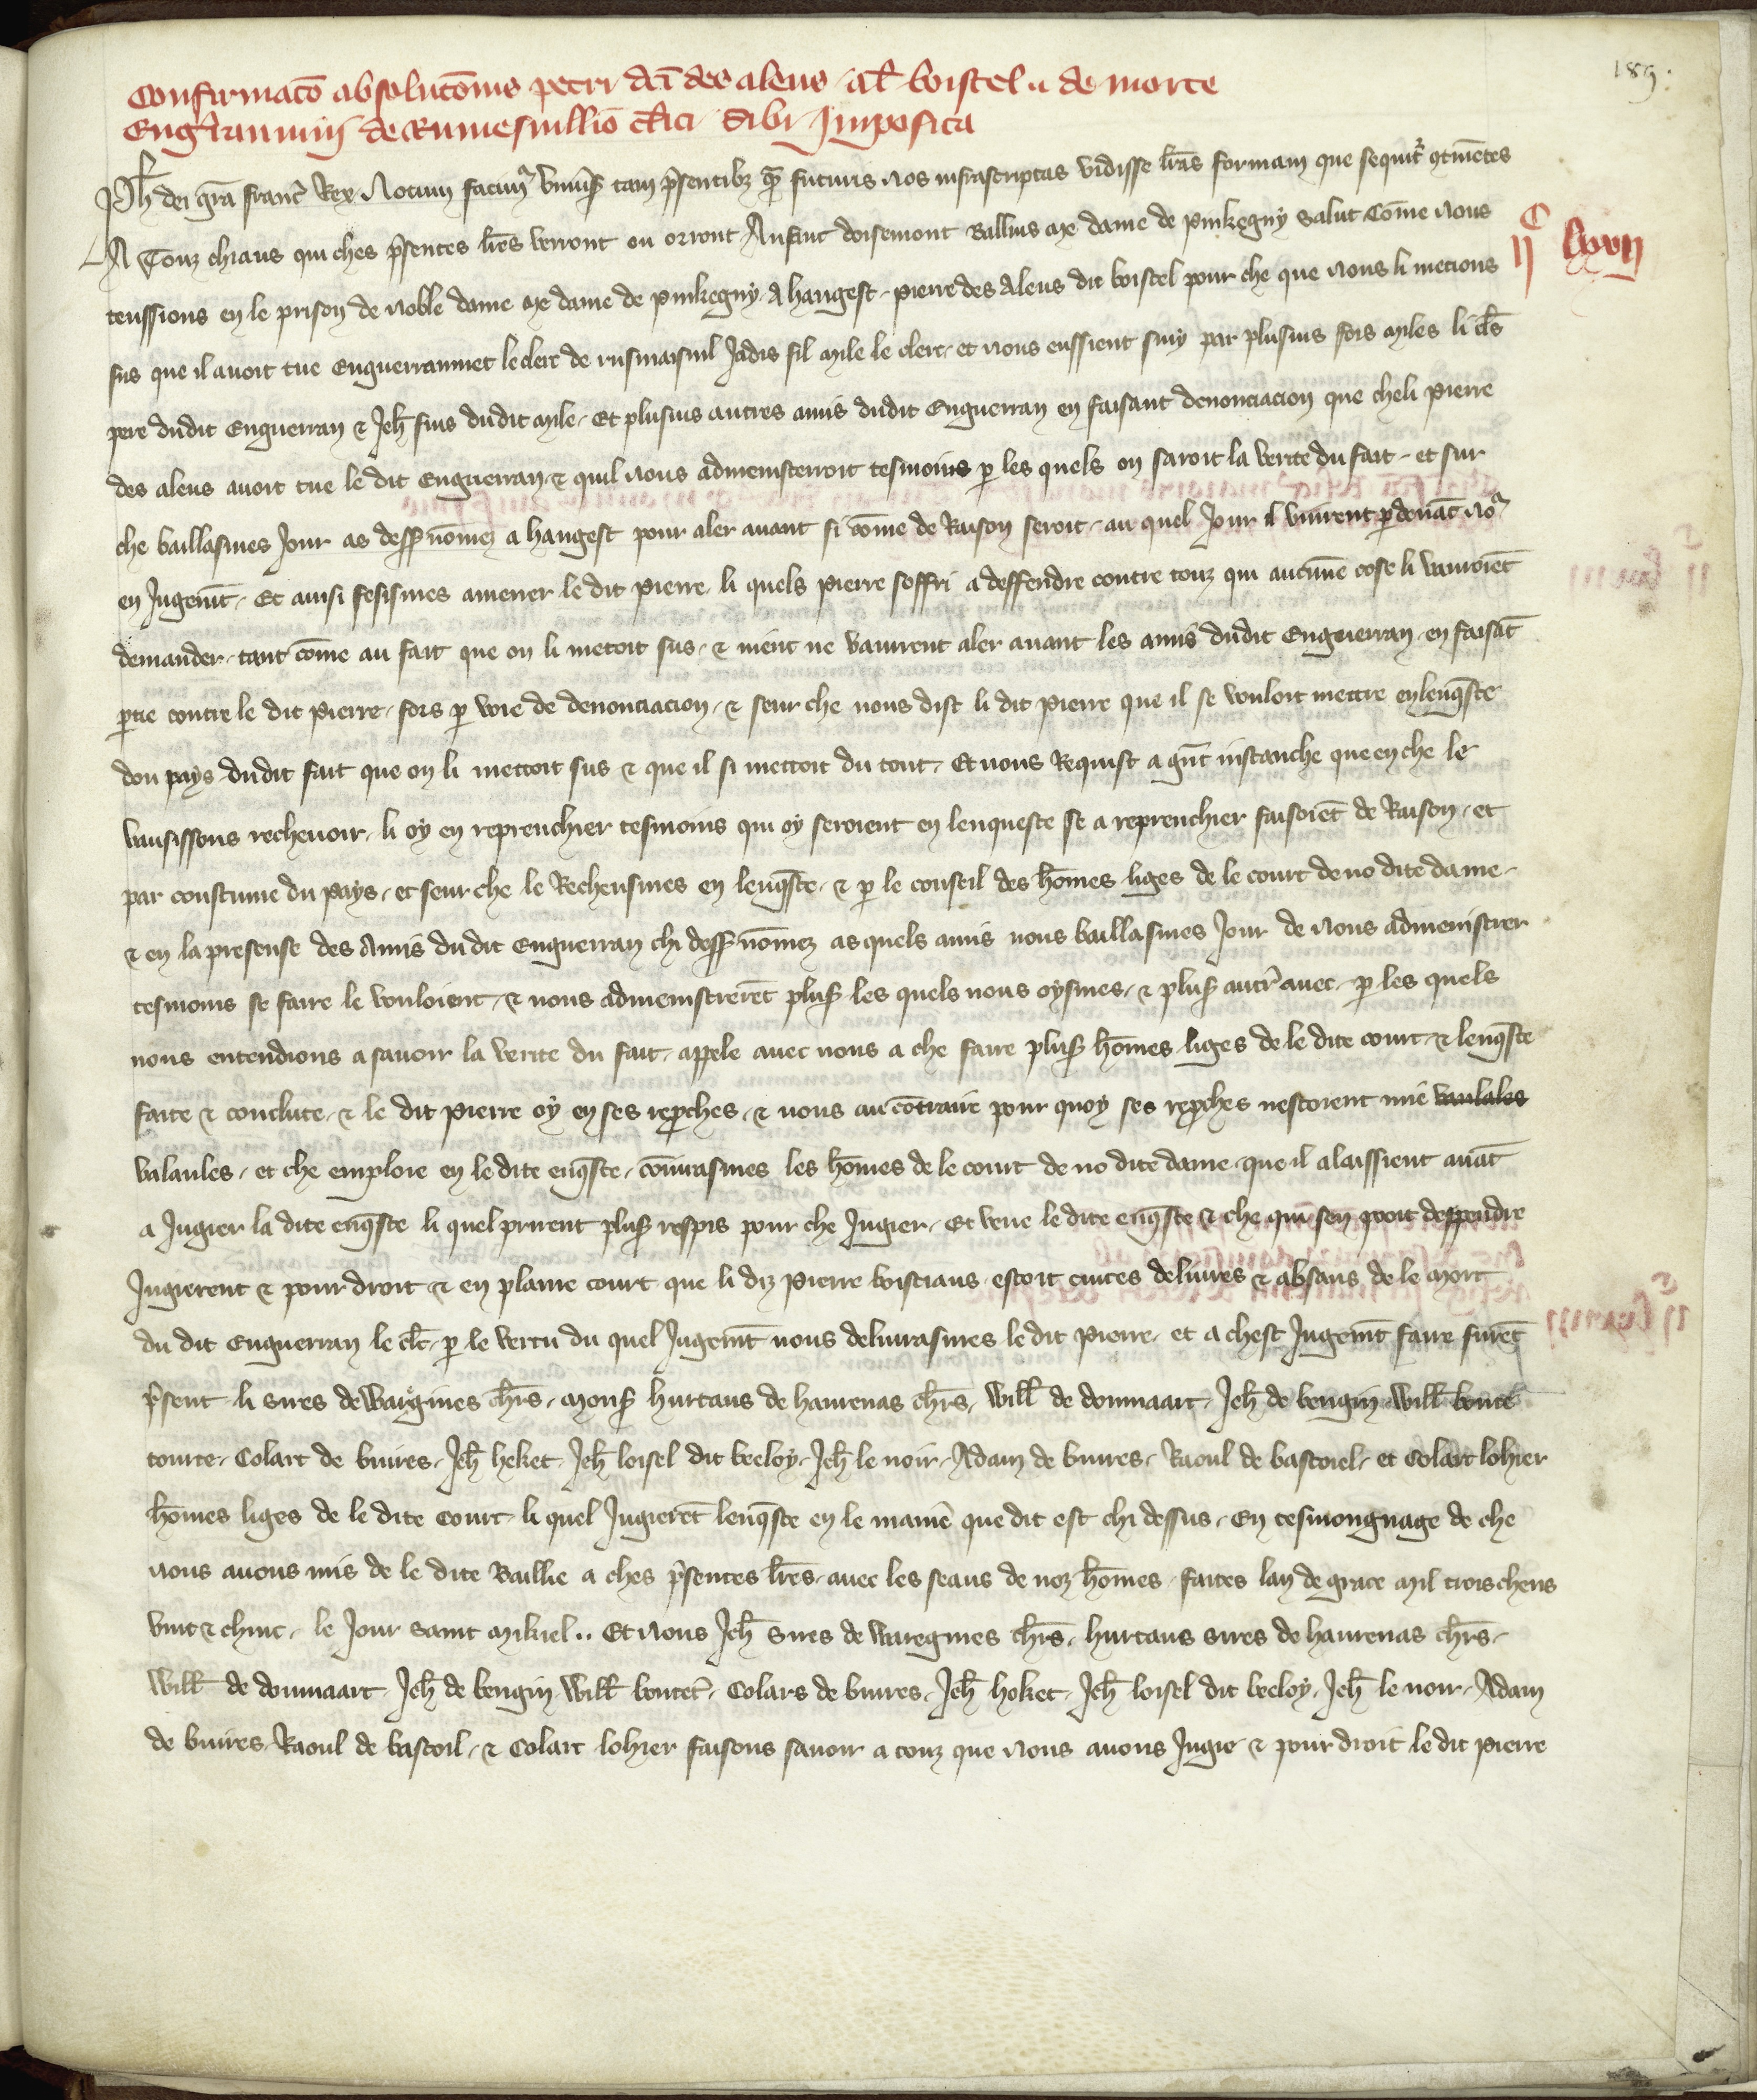 189.
Confirmacō absolucōnis petri dci des aleus al boistel · de morte
Engrannin de Rumesnillio clici sibi Imposita
Ph dei gra franc Rex Notum facim univs tam psentibz qm futuris nos infrascriptas vidisse lras formam que sequitr qtinētes
A Touz chiaus qui ches psentes lres verront ou orront Anfant doisemont Ballius me dame de pinkegny salut Cōme nous
IIc lxvii
tenissions en le prison de noble dame me dame de pinkegny a hangest pierre des aleus dit boistel pour che que nous li metions
sus que il avoit tue Enguerrannet le clerc de rusmaisnil Jadis fil mile le clerc et nous eussient suiy par plusius fois miles li cls
pere dudit Enguerran & Jeh fius dudit mile Et plusius autres amis dudit Enguerran en faisant denonciacion que cheli pierre
des aleus avoit tue le dit Enguerran & quil nous admenisterroit tesmoins p les quels on saroit la verite du fait et sur
che baillasmes Jour as dess nōmez a hangest pour aler avant si cōme de Raison seroit au quel Jour il vinrent p devāt no
en Jugemt Et ausi fesismes amener le dit pierre li quels pierre soffri a deffendre contre touz qui aucune cose li vauroiēt
demander tant cōme au fait que on li metoit sus & nient ne vaurent aler avant les amis dudit Enguerran en faisāt
ptie contre le dit pierre fors p voie de denonciacion & seur che nous dist li dit pierre que il se vouloit mettre en lenqste
dou pays dudit fait que on li mettoit sus & que il si mettoit du tout Et nous Requist a gnt instanche que en che le
vausissons rechevoir li oy en reprouchier tesmoins qui oy seroient en lenqueste se a reprouchier faisoiēt de Raison et
par coustume du pays et seur che le Recheusmes en lenqste & p le conseil des hōmes liges de le court de no dite dame
& en la presense des amis du dit Enguerran chi dess nōmez as quels amis nous baillasmes Jour de nous admenistrer
tesmoins se faire le vouloient & nous admenistrerēt plus les quels nous oysmes & plus autr avec p les quels
nous entendions a savoir la verite du fait appele avec nous a che faire plus hōmes liges de le dite court & lenqste
faite & conclute & le dit pierre oy en ses repches & nous au cōtraire pour quoy ses repches nestoient mie vaulables
valaules et che emploie en le dite enqste cōiurasmes les hōmes de le court de no dite dame que il alaissient avāt
a Jugier la dite enqste li quel prirent plus respis pour che Jugier Et veue le dite enqste & che qui sen pooit despendre
Jugierent & pour droit & en plaine court que li diz pierre boistiaus estoit cuites delivres & absaus de le mort
du dit Enguerran le clc p le vertu du quel Jugemt nous delivrasmes le dit pierre et a chest Jugemt faire furēt
psent li sires de Waignies chrs mons hurtaus de havenas chrs will de donmaart Jeh de bengin will boute
tourte Colart de buires Jeh heket Jeh loisel dit beeloy Jeh le noir Adam de buires Raoul de bastoiel et Colart lohier
hōmes liges de le dite Court li quel Jugierēt lenqste en le maniē que dit est chi dessus En tesmongnage de che
nous avons mis de le dite Baillie a ches psentes lres avec les seaus de noz hōmes faites lan de grace mil trois chens
vint & chinc le Jour saint mikiel Et nous Jeh sires de Waregnies chrs hurtaus sires de havenas chrs
Will de donmaart Jeh de bengin Will boutet Colars de buires Jeh hoket Jeh loisel dit beeloy Jeh le noir Adam
de buires Raoul de bastoil & Colart lohier faisons savoir a touz que nous avons Jugie & pour droit le dit pierre